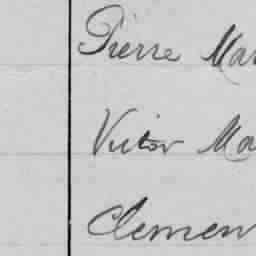 Pierre Mar
Victor Ma
Clemen